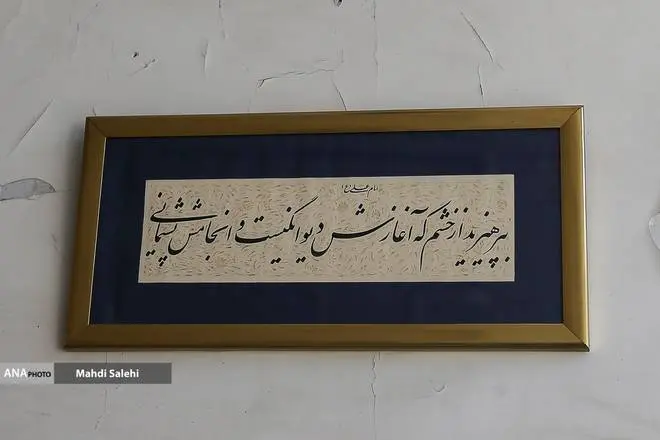 امام علی (ع)
بپرهیزید از خشم که آغازش دیوانگیست و انجامش پشیمانی
ANAPHOTO
Mahdi Salehi